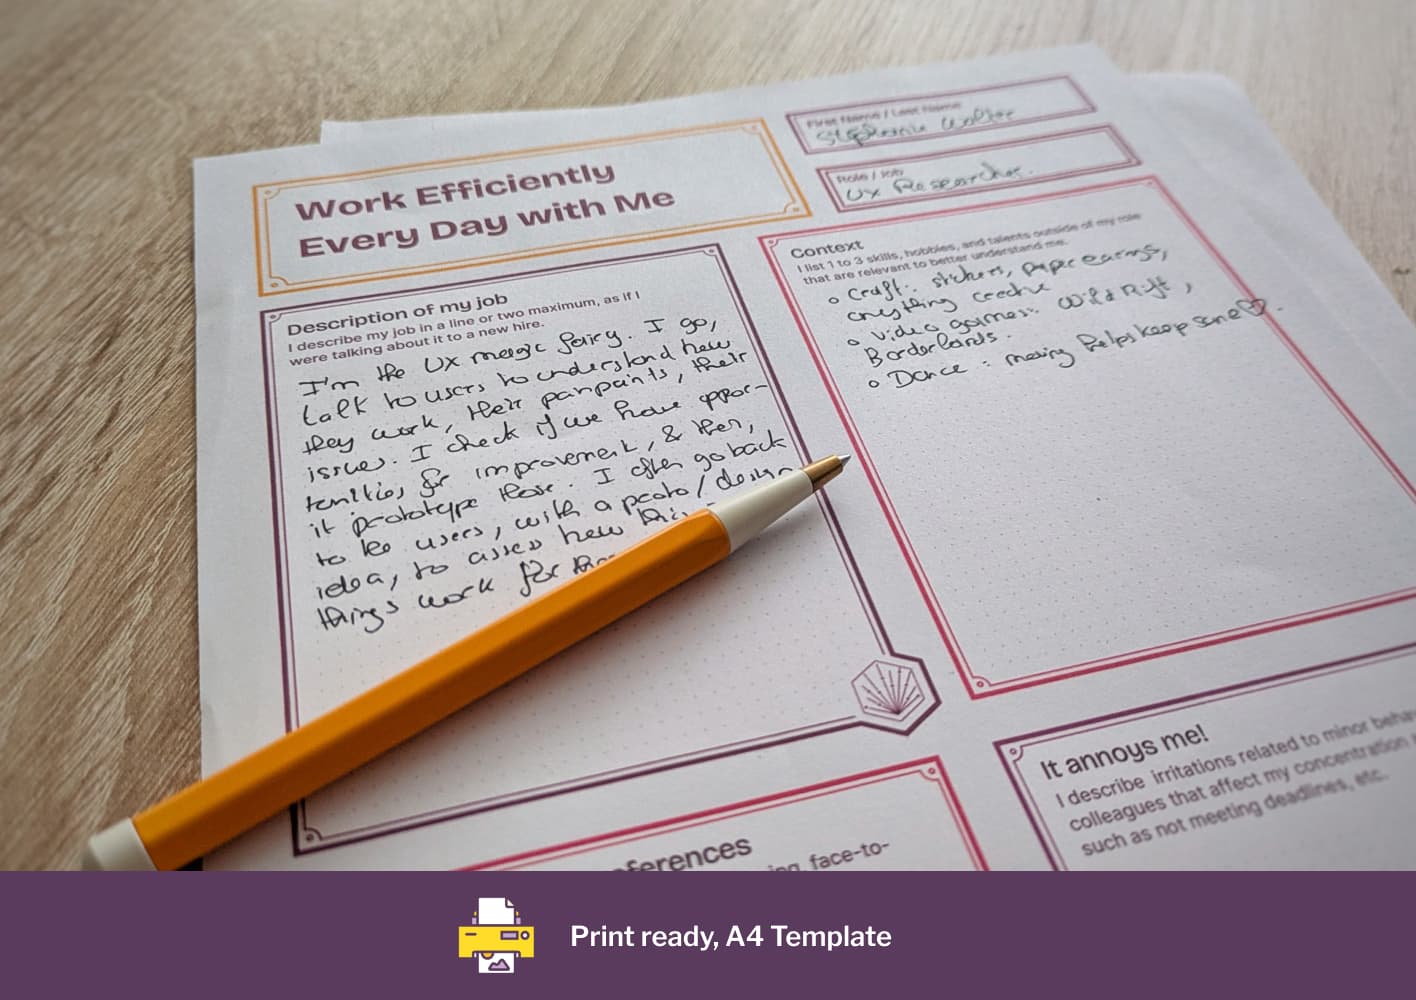 Work Efficiently
Every Day with Me
First Name / Last Name
Stéphanie Walter
Role / Job
UX Researcher.
Description of my job
I describe my job in a line or two maximum, as if I
were talking about it to a new hire.
I'm the UX magic fairy. I go,
talk to users to understand how
they work, their painpoints, their
issues. I check if we have oppor-
tunities for improvement, & then,
it prototype those. I often go back
to the users, with a proto / design
idea, to assess how
things work for
Context
I list 1 to 3 skills, hobbies, and talents outside of my role
that are relevant to better understand me.
o Craft: stickers, paper earrings,
anything creative
o Video games: Wild Rift,
Borderlands.
o Dance: moving helps keep sane ♡.
ferences
face-to-
It annoys me!
I describe irritations related to minor
colleagues that affect my concentration
such as not meeting deadlines, etc.
Print ready, A4 Template